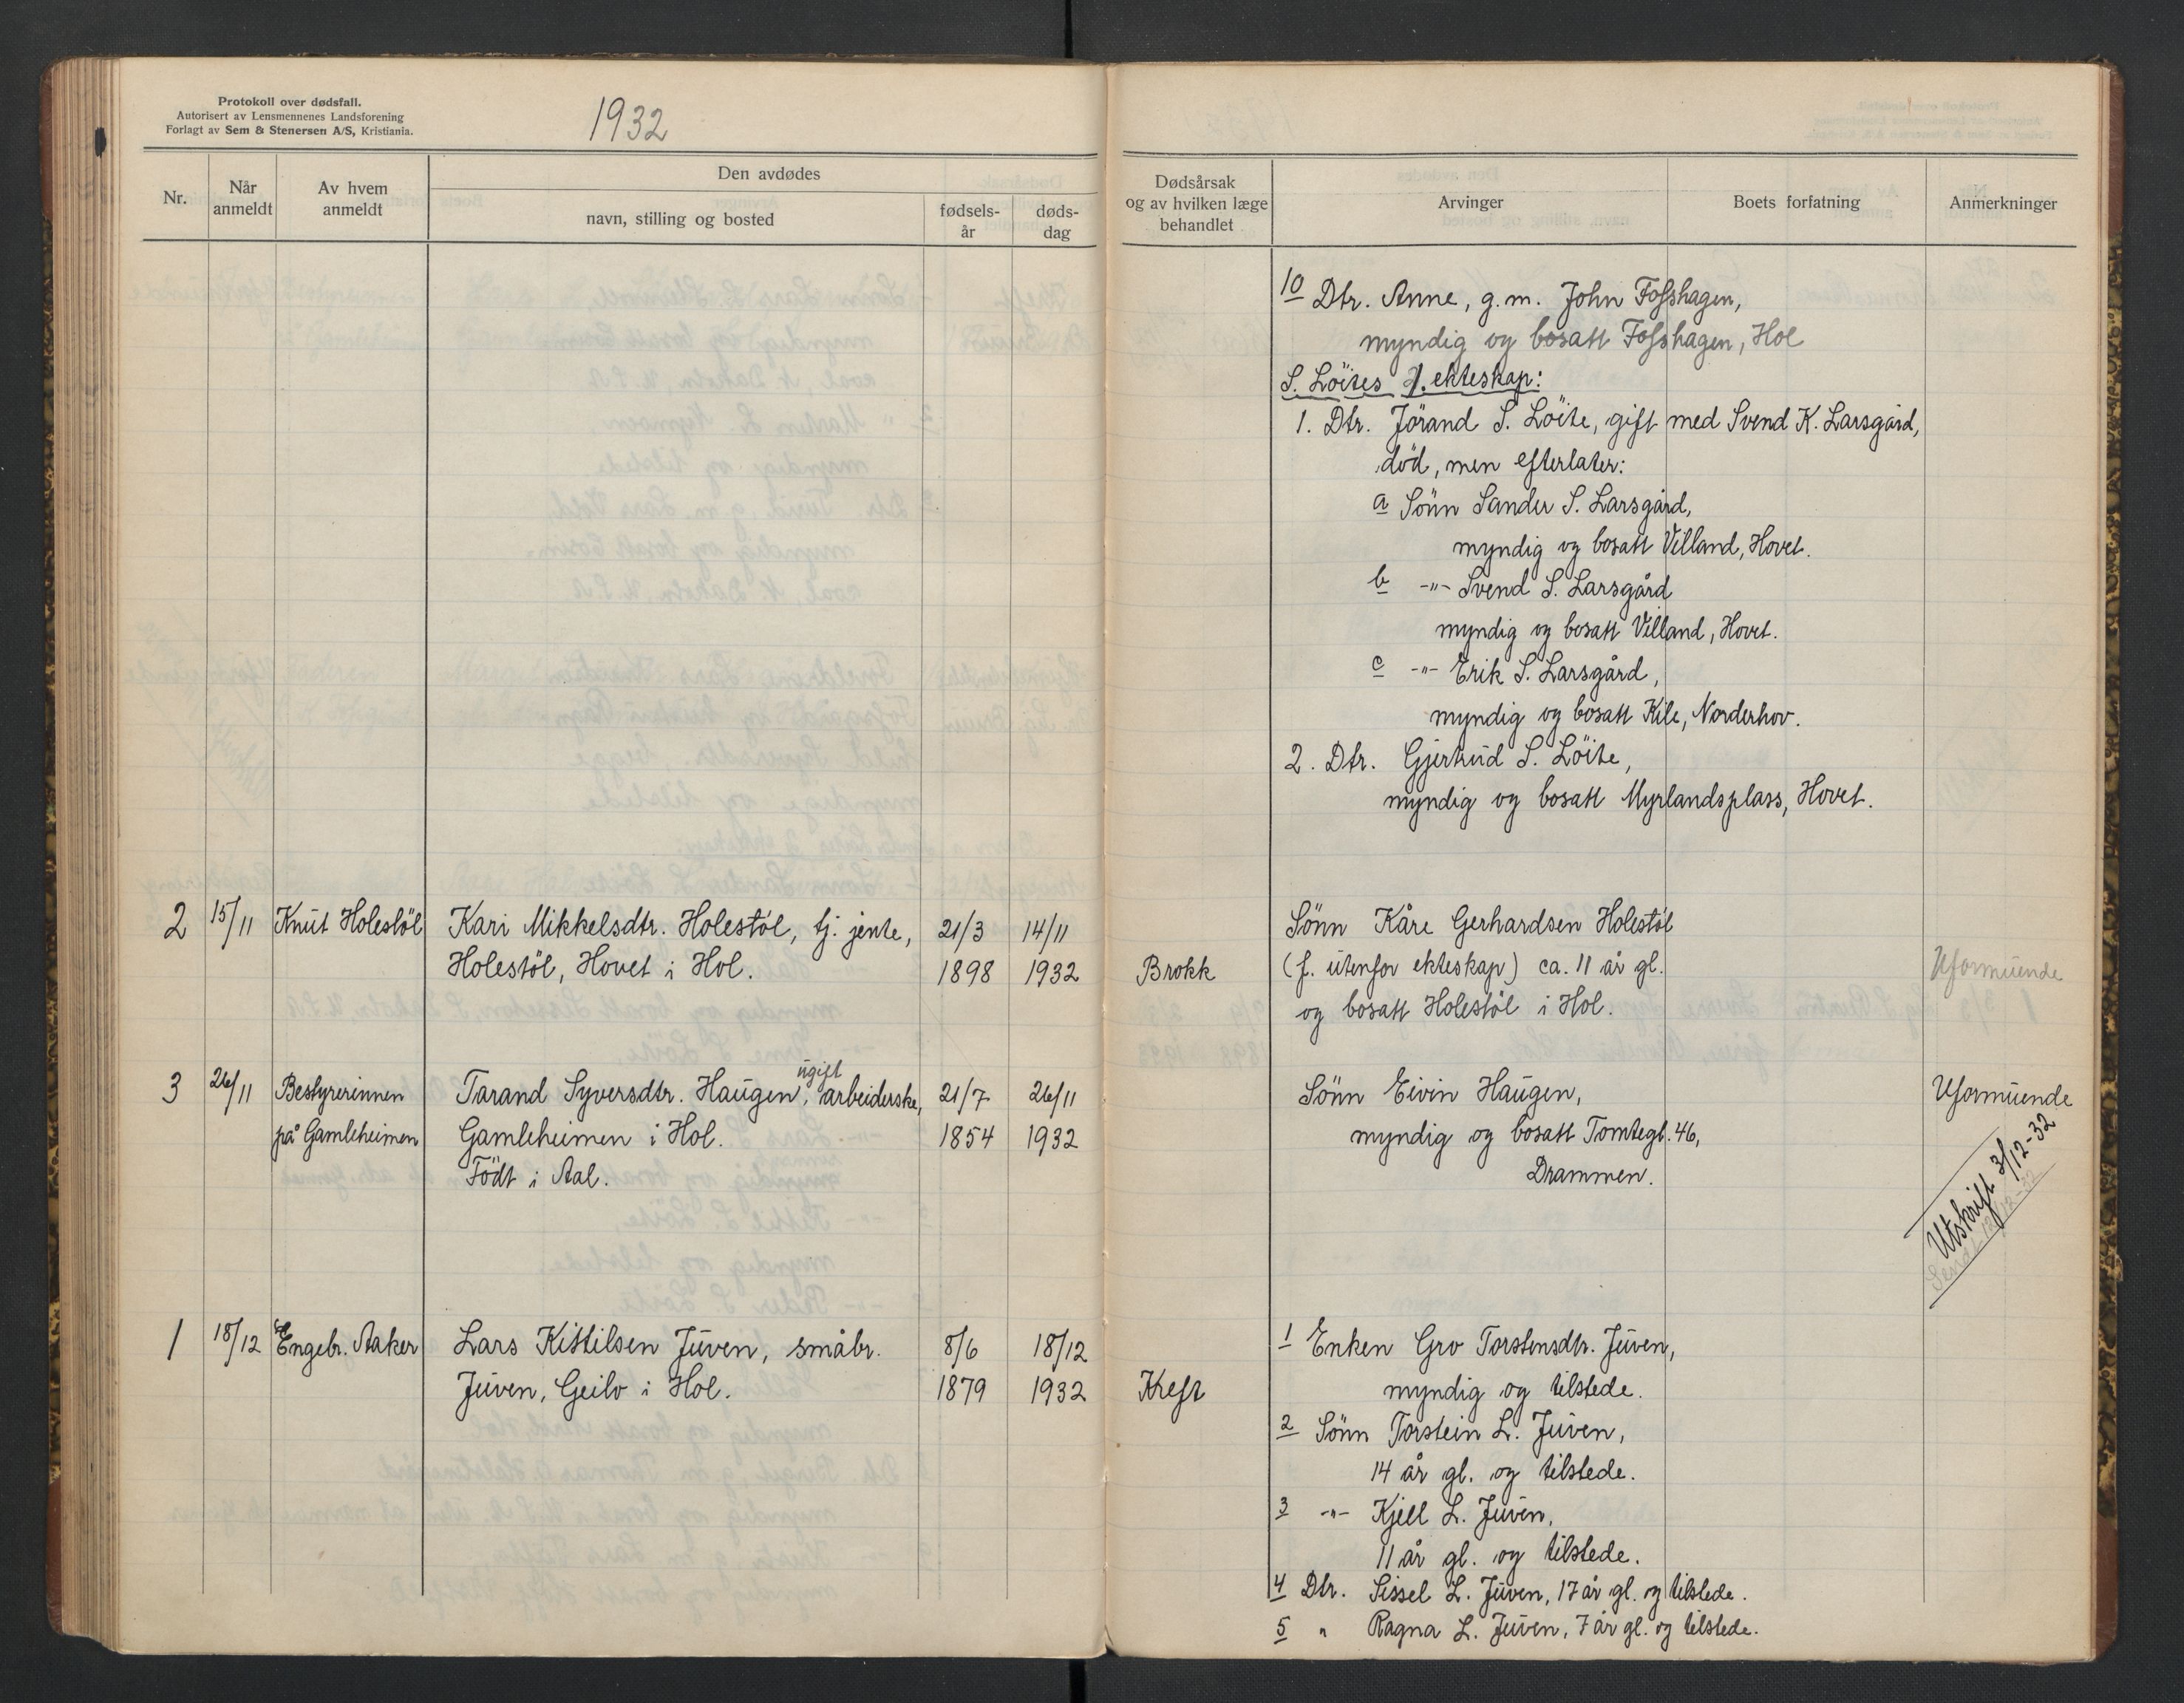 Protokoll over dødsfall.
Autorisert av Lensmennenes Landsforening
Forlagt av Sem & Stenersen A/S, Kristiania.
1932
Nr.
Når anmeldt
Av hvem anmeldt
Den avdødes
navn, stilling og bosted
fødsels-år
døds-dag
Dødsårsak og av hvilken læge behandlet
Arvinger
Boets forfatning
Anmerkninger
10 Dtr. Anne, g.m. John Fosshagen,
myndig og bosatt Fosshagen, Hol
S. Löites 1. ekteskap:
1. Dtr. Jörand S. Löite, gift med Svend K. Larsgård,
död, men efterlater:
a Sönn Sander S. Larsgård,
myndig og bosatt Villand, Hovet.
b -"- Svend S. Larsgård
myndig og bosatt Villand, Hovet.
c -"- Erik S. Larsgård,
myndig og bosatt Kile, Norderhov.
2. Dtr. Gjertrud S. Löite,
myndig og bosatt Myrlandsplass, Hovet.
2 15/11 Knut Holestöl Kari Mikkelsdtr. Holestöl, tj. jente, 21/3 14/11 Sönn Kåre Gerhardsen Holestöl
Holestöl, Hovet i Hol. 1898 1932 Brokk (f. utenfor ekteskap) ca. 11 år gl. Uformuende
og bosatt Holestöl i Hol.
3 26/11 Bestyrerinnen Tarand Syversdtr. Haugen, ugift arbeiderske, 21/7 26/11 Sönn Eivin Haugen, Uformuende
på Gamleheimen Gamleheimen i Hol. 1854 1932 myndig og bosatt Tomtegt. 46,
Födt i Aal. Drammen.
Utskrift 3/12-32
Sendt 12/12-32
1 18/12 Engebr. Aaker Lars Kittilsen Juven, småbr. 8/6 18/12 1 Enken Gro Torstensdtr. Juven,
Juven, Geilo i Hol. 1879 1932 Kreft myndig og tilstede.
2 Sönn Torstein L. Juven,
14 år gl. og tilstede.
3 -"- Kjell L. Juven,
11 år gl. og tilstede.
4 Dtr. Sissel L. Juven, 17 år gl. og tilstede.
5 " Ragna L. Juven, 7 år gl. og tilstede.